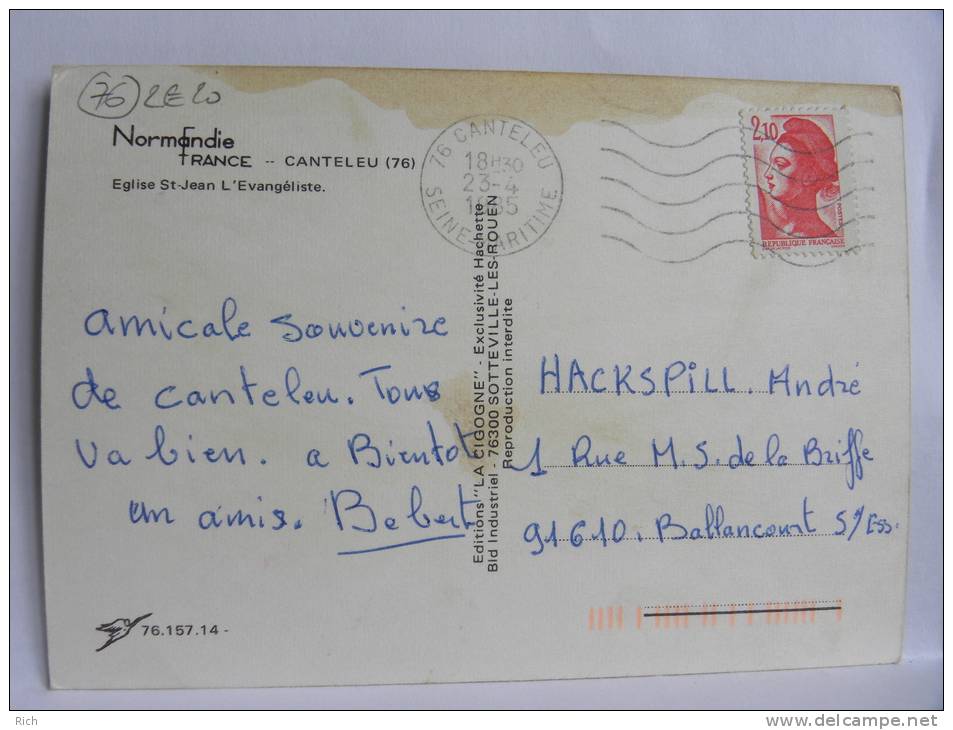 76 2E20
Normandie
FRANCE -- CANTELEU (76)
Eglise St-Jean L'Evangéliste.
76 CANTELEU
18H30
23-4
1985
SEINE-MARITIME
2,10
POSTES
REPUBLIQUE FRANÇAISE
Amicale Souvenire
de canteleu. Tous
va bien. a Bientot
un amis. Bebert
Editions "LA CIGOGNE" - Exclusivité Hachette
Bld Industriel - 76300 SOTTEVILLE-LES-ROUEN
Reproduction interdite
HACKSPILL. André
1 Rue M.S. de la Briffe
91610. Ballancourt S/Ess.
76.157.14 -
Rich
www.delcampe.net